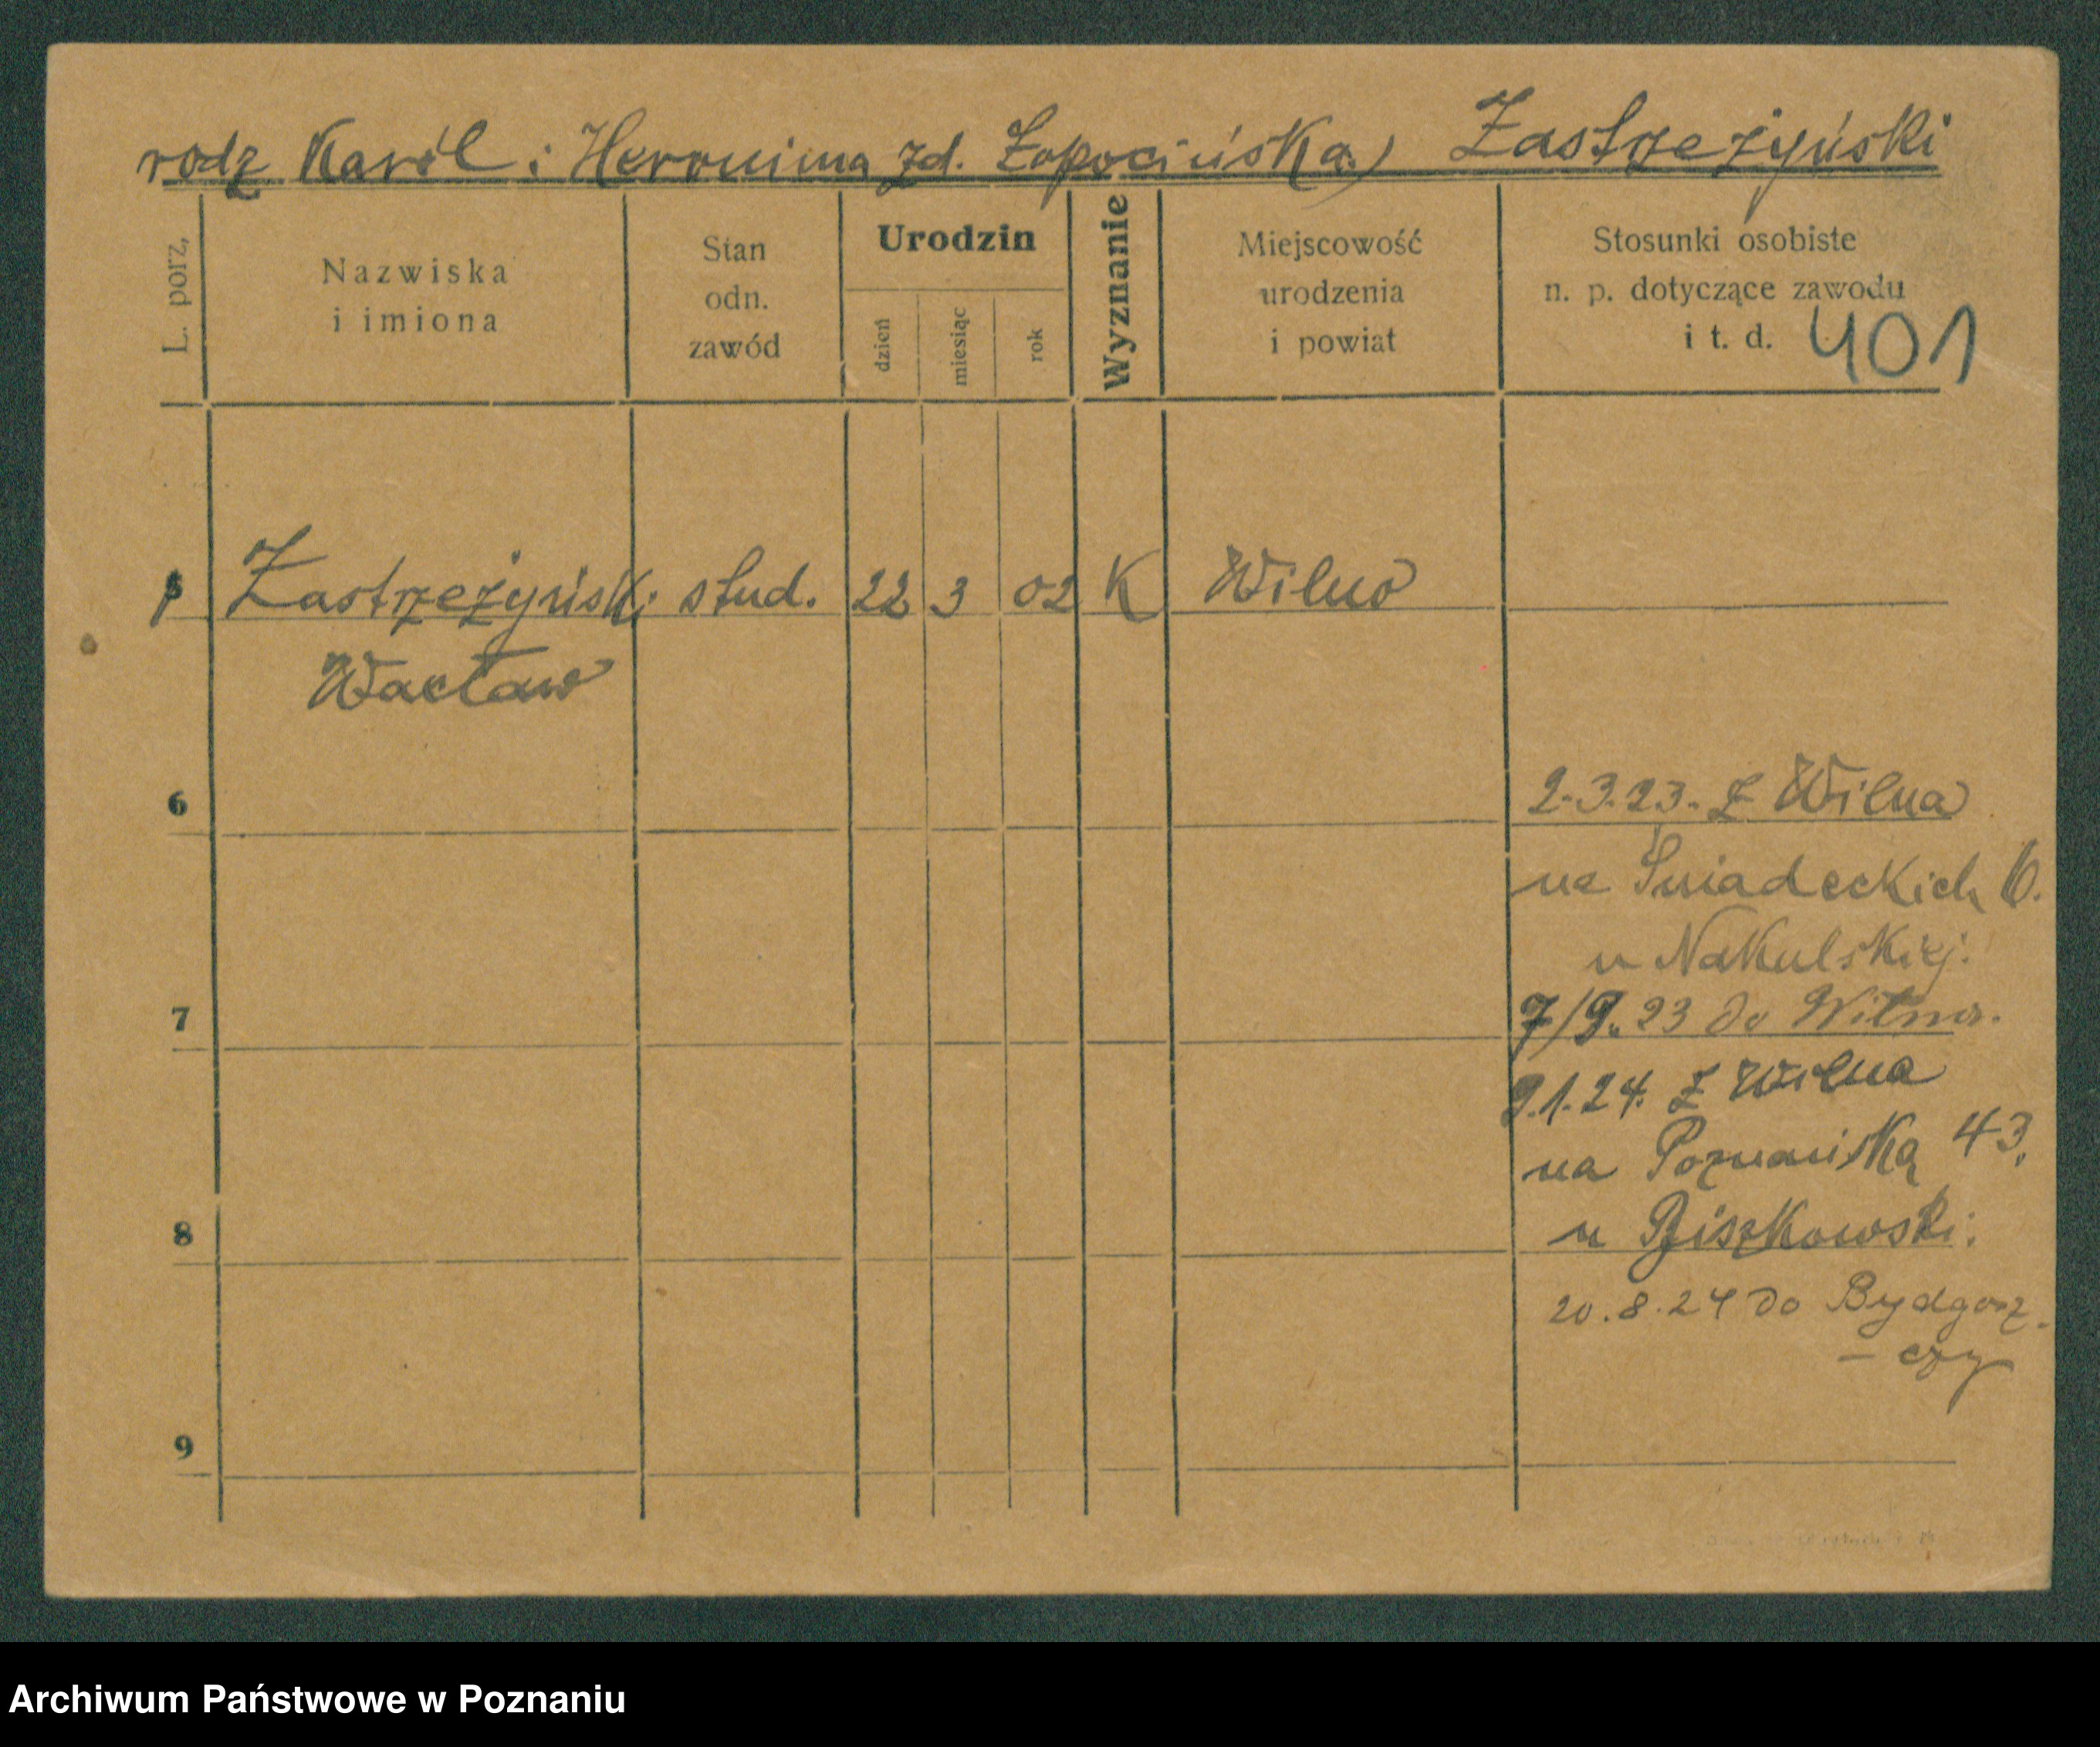 rodz Karól i Heronima zd. Łopocińska) Zastrzeżyński
L. porz,
Nazwiska
i imiona
Stan
odn.
zawód
Urodzin
dzień
miesiąc
rok
Wyznanie
Miejscowość
urodzenia
i powiat
Stosunki osobiste
n. p. dotyczące zawodu
i t. d. 401
Zastrzeżyński stud. 22 3 02 K Wilno
Wacław
6
2.3.23. z Wilna
na Śniadeckich
u Nakulskiej.
7
7/9. 23 do Wilna.
9.1.24. z Wilna
na Poznańską 43,
8
u
20.8.24 do Bydgosz
- czy
9
Archiwum Państwowe w Poznaniu